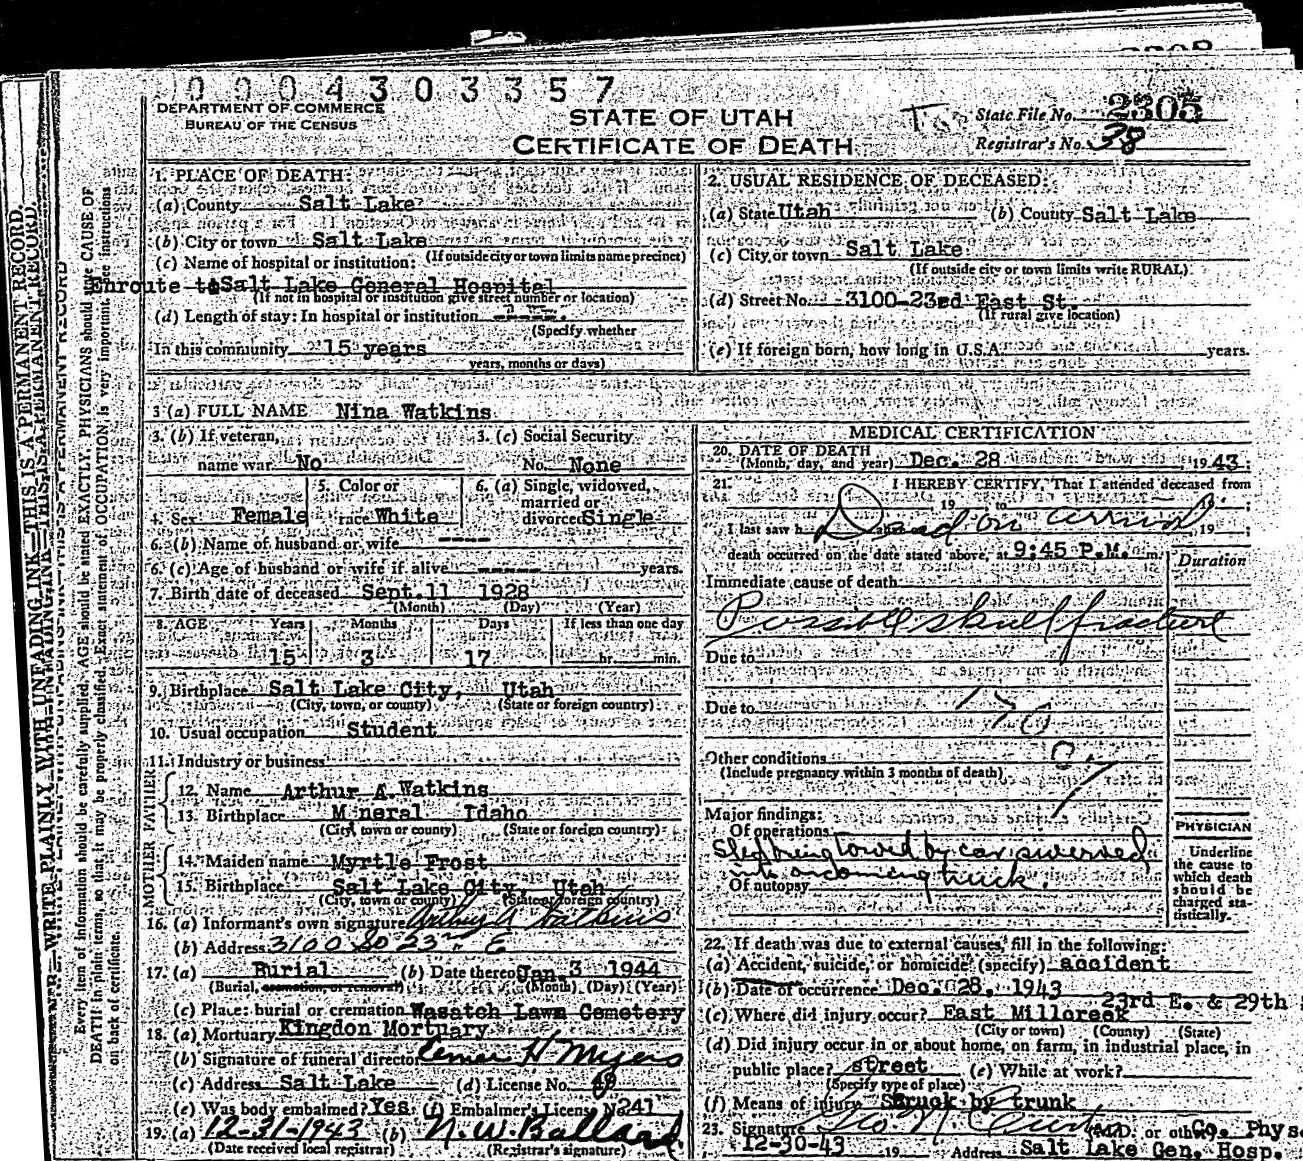 2305
0 0 0 4 3 0 3 3 5 7
DEPARTMENT OF COMMERCE
BUREAU OF THE CENSUS
STATE OF UTAH
CERTIFICATE OF DEATH
State File No. 2305
Registrar's No. 38
1. PLACE OF DEATH:
(a) County Salt Lake
(b) City or town Salt Lake
(If outside city or town limits name precinct)
(c) Name of hospital or institution:
Enroute to Salt Lake General Hospital
(If not in hospital or institution give street number or location)
(d) Length of stay: In hospital or institution
(Specify whether
In this community 15 years
years, months or days)
2. USUAL RESIDENCE OF DECEASED:
(a) State Utah (b) County Salt Lake
(c) City or town Salt Lake
(If outside city or town limits write RURAL)
(d) Street No. 3100-23rd East St.
(If rural give location)
(e) If foreign born, how long in U.S.A. years.
3 (a) FULL NAME Nina Watkins
3. (b) If veteran, 3. (c) Social Security
name war No No. None
4. Sex Female 5. Color or race White 6. (a) Single, widowed, married or divorced Single
6. (b) Name of husband or wife ----
6. (c) Age of husband or wife if alive ----- years.
7. Birth date of deceased Sept. 11 1928
(Month) (Day) (Year)
8. AGE Years Months Days If less than one day
15 3 17 hr. min.
9. Birthplace Salt Lake City, Utah
(City, town, or county) (State or foreign country)
10. Usual occupation Student
11. Industry or business
FATHER
12. Name Arthur A. Watkins
13. Birthplace Mineral Idaho
(City, town or county) (State or foreign country)
MOTHER
14. Maiden name Myrtle Frost
15. Birthplace Salt Lake City, Utah
(City, town or county) (State or foreign country)
16. (a) Informant's own signature Arthur A Watkins
(b) Address 3100 So 23rd E
17. (a) Burial (b) Date thereof Jan. 3 1944
(Burial, cremation, or removal) (Month) (Day) (Year)
(c) Place: burial or cremation Wasatch Lawn Cemetery
18. (a) Mortuary Kingdon Mortuary
(b) Signature of funeral director H Myers
(c) Address Salt Lake (d) License No. 49
(e) Was body embalmed? Yes (f) Embalmer's License No. 241
19. (a) 12-31-1943 (b) N. W. Ballard
(Date received local registrar) (Registrar's signature)
MEDICAL CERTIFICATION
20. DATE OF DEATH
(Month, day, and year) Dec. 28 1943
21. I HEREBY CERTIFY, That I attended deceased from
19 to 19
I last saw h alive on 19
Dead on arrival
death occurred on the date stated above, at 9:45 P.M. m.
Duration
Immediate cause of death
Possible skull fracture
Due to
Due to
170
Other conditions
(Include pregnancy within 3 months of death)
Major findings:
Of operations
Sleigh being towed by car swerved
into oncoming truck.
Of autopsy
PHYSICIAN
Underline the cause to which death should be charged statistically.
22. If death was due to external causes, fill in the following:
(a) Accident, suicide, or homicide (specify) accident
(b) Date of occurrence Dec. 28, 1943
23rd E. & 29th
(c) Where did injury occur? East Millcreek
(City or town) (County) (State)
(d) Did injury occur in or about home, on farm, in industrial place, in
public place? street (e) While at work?
(Specify type of place)
(f) Means of injury Struck by trunk
23. Signature M.D. or other Co. Phys.
12-30-43 19 Address Salt Lake Gen. Hosp.
N. B.—WRITE PLAINLY WITH UNFADING INK—THIS IS A PERMANENT RECORD.
Every item of information should be carefully supplied. AGE should be stated EXACTLY. PHYSICIANS should state CAUSE OF
DEATH in plain terms, so that it may be properly classified. Exact statement of OCCUPATION is very important. See instructions
on back of certificate.